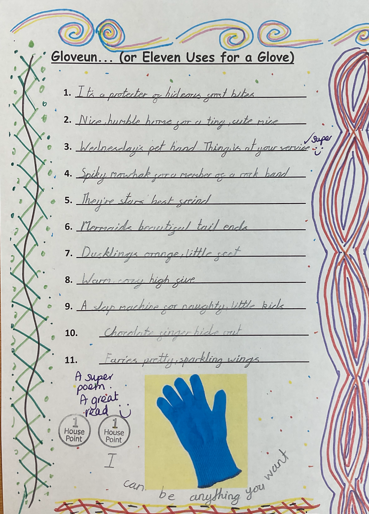 Gloveun... (or Eleven Uses for a Glove)
1. It's a protecter of hideous goat bites
2. Nice, humble home for a tiny, cute mice
3. Wednesday's pet hand Thing is at your service
super
4. Spiky mowhak for a member of a rock band
5. They're stars best freind
6. Mermaids beautiful tail ends
7. Ducklings orange, little feet
8. Warm, cosy high five
9. A slap machine for naughty, little kids
10. Chocolate ginger hide out
11. Faries pretty, sparkling wings
A super
poem.
A great
read
1
House
Point
1
House
Point
I
can be anything you want